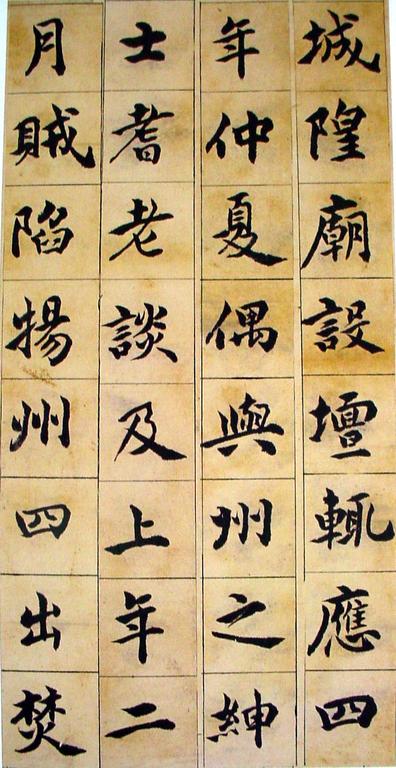 城隍廟設壇輒應四
年仲夏偶與州之紳
士耆老談及上年二
月賊陷揚州四出焚